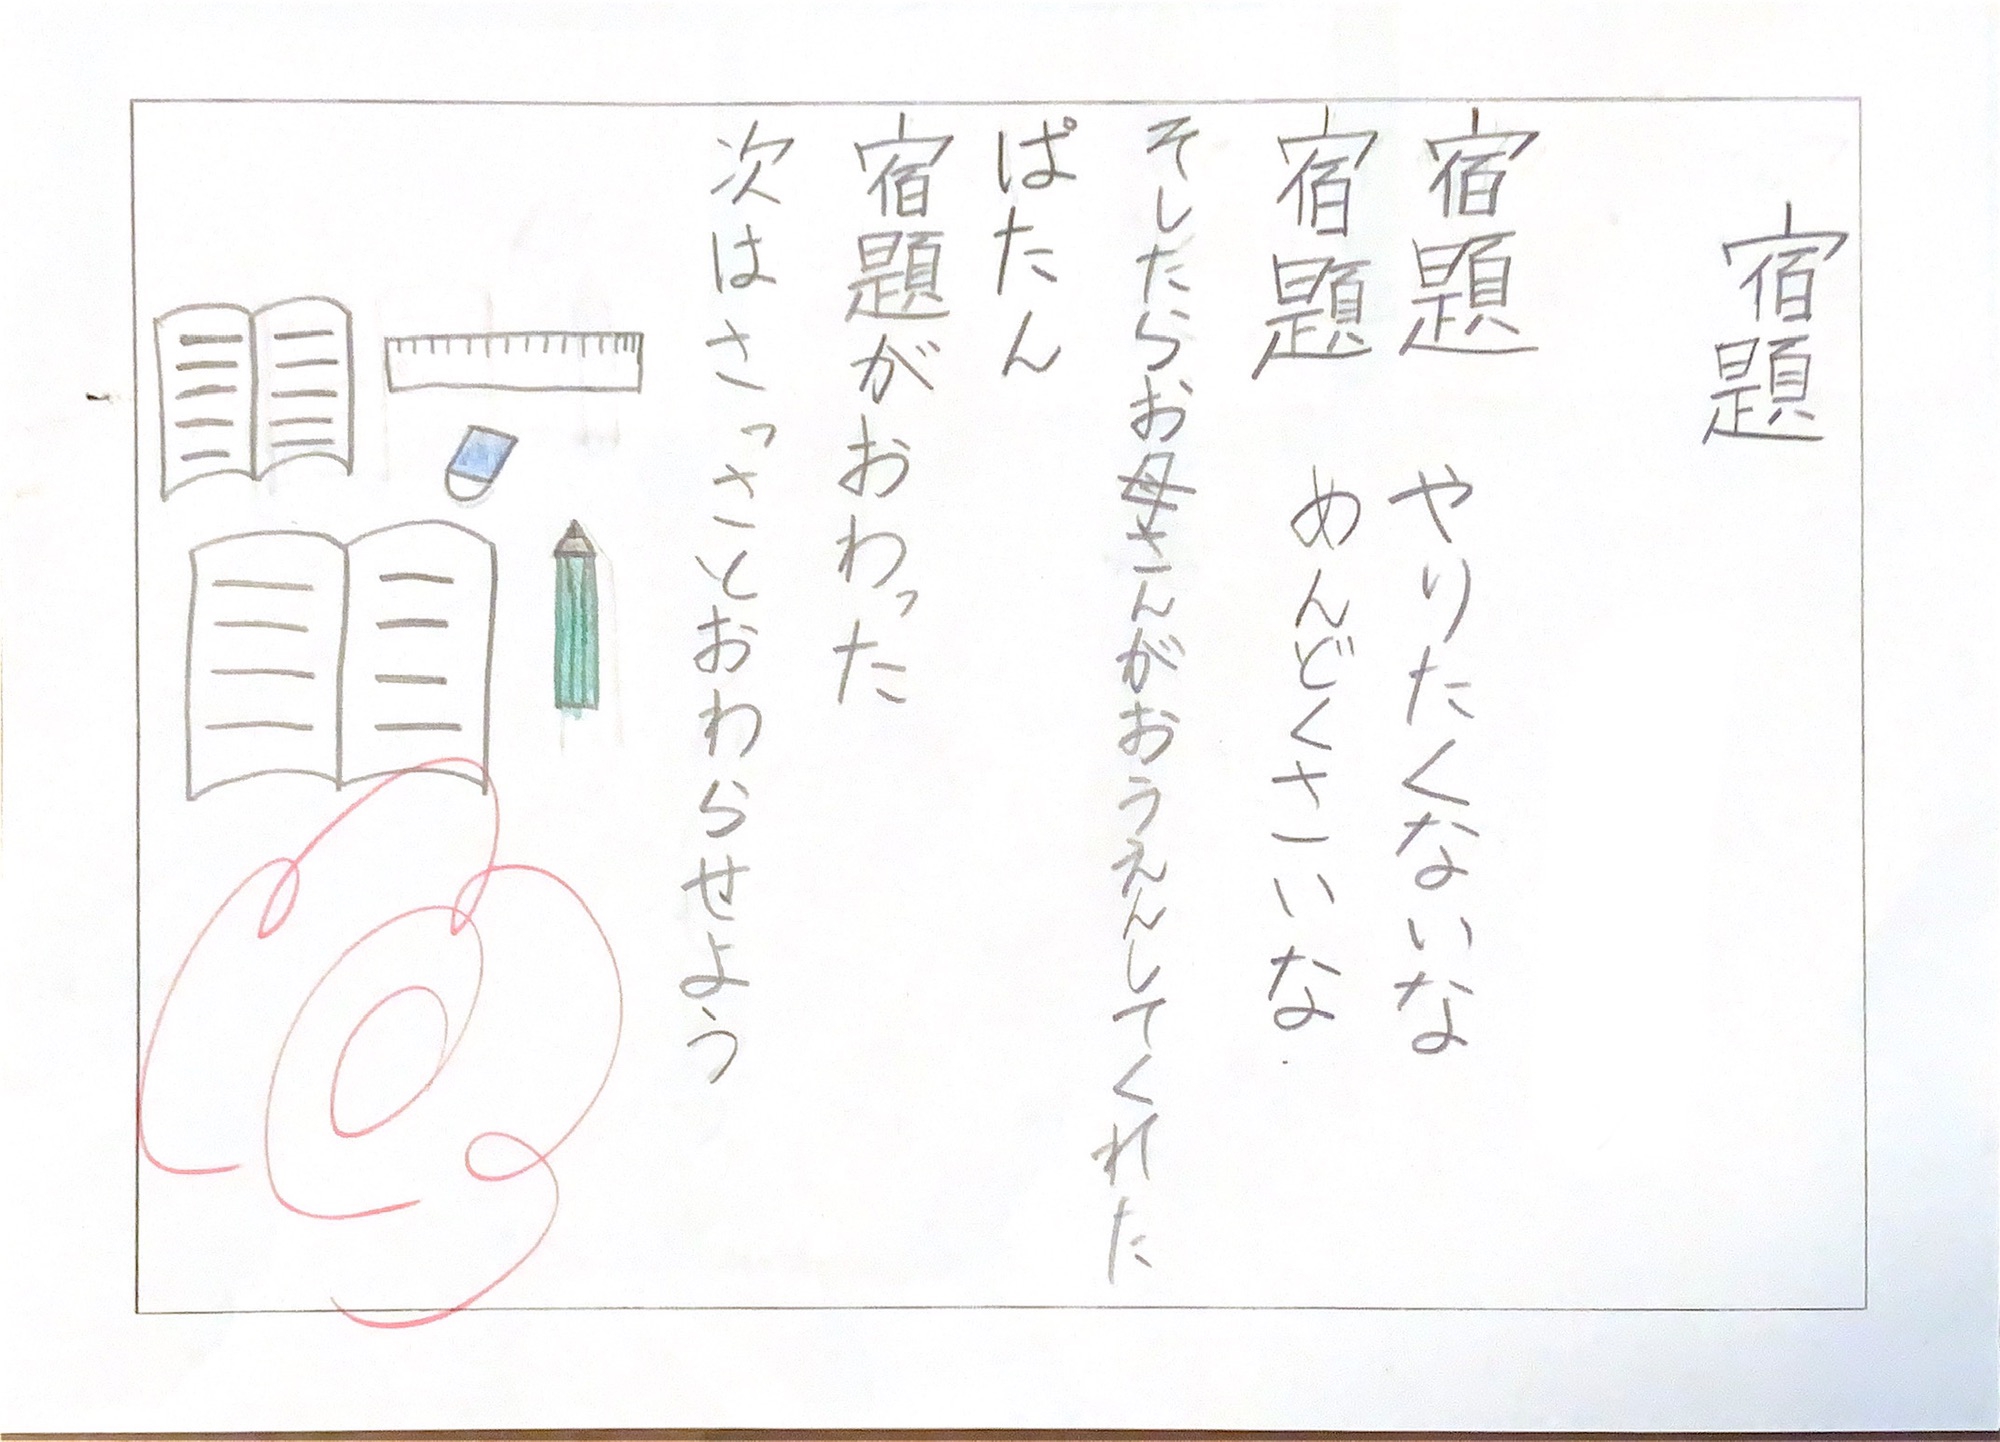 宿題
宿題　やりたくないな
宿題　めんどくさいな
そしたらお母さんがおうえんしてくれた
ぱたん
宿題がおわった
次はさっさとおわらせよう